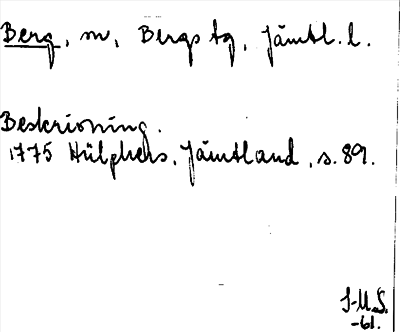 Berg, m, Bergs tg, Jämtl. l.
Beskrivning.
1775 Hülphers, Jämtland, s. 89.
J-M.S.
-61.